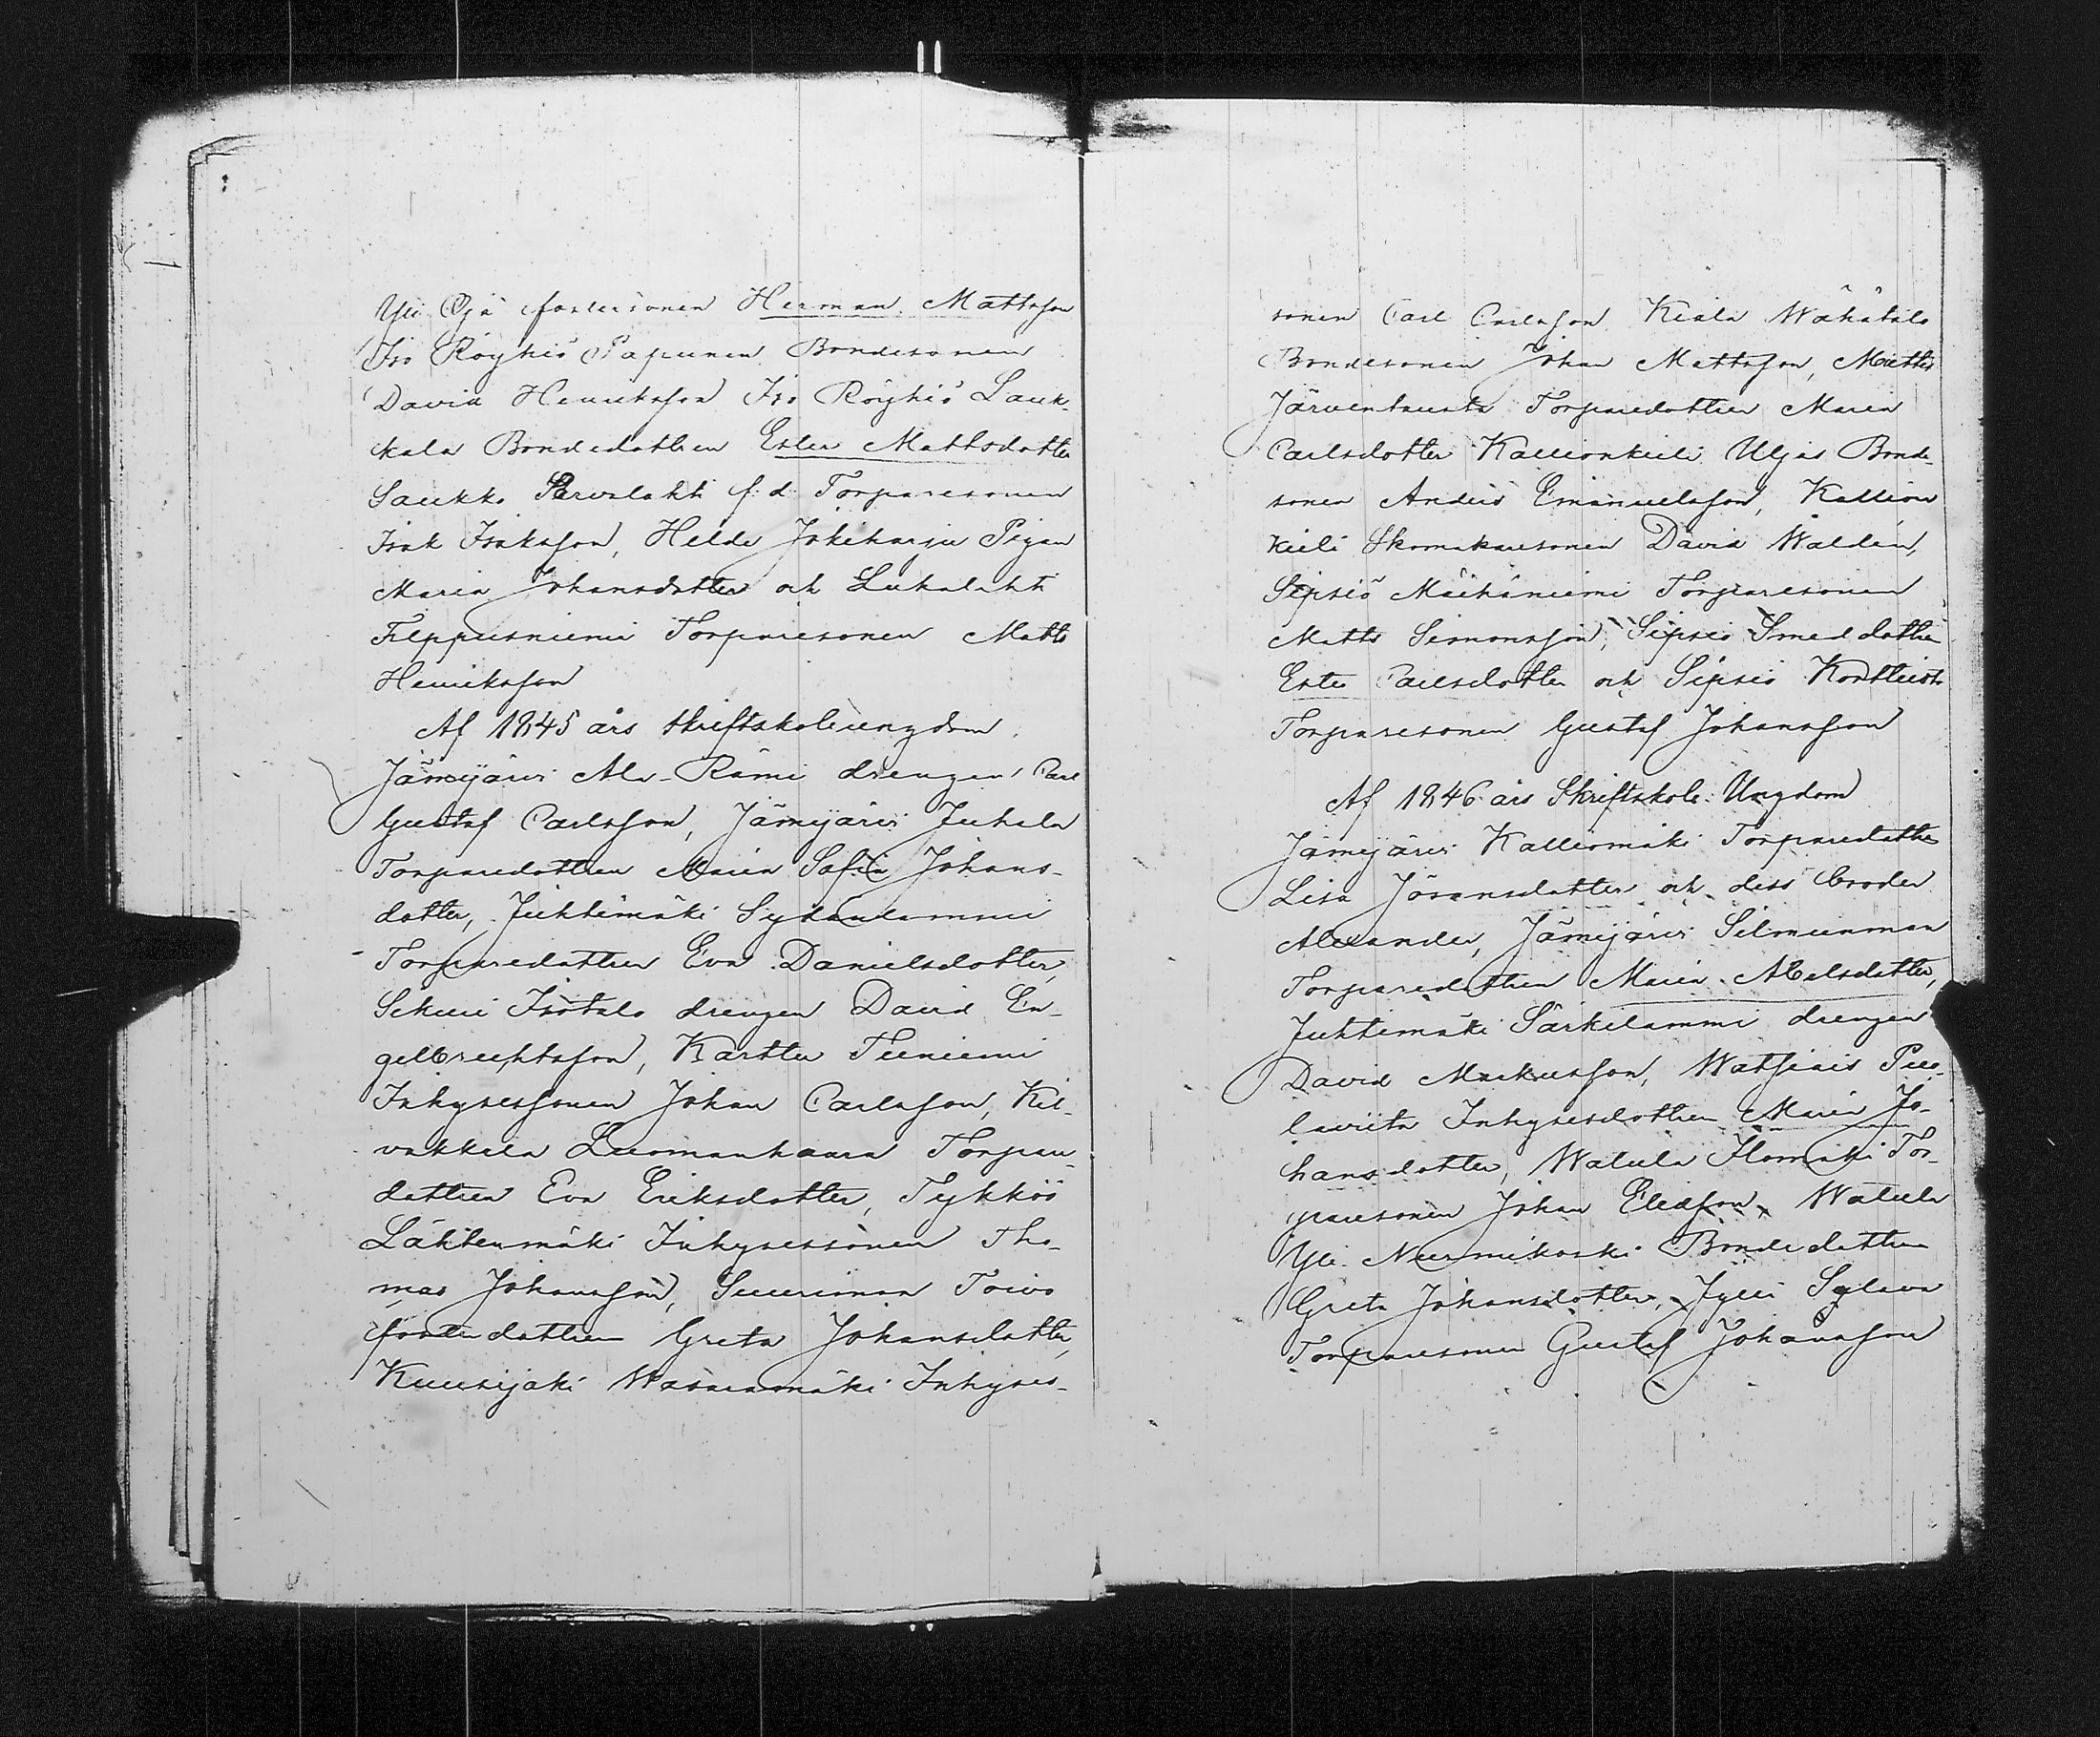 Yli Öjä fostersonen Herman Mattsson
Iso Röyhiö Papunen Bondesonen
David Henriksson Iso Röyhiö Lauk-
kala Bondedottren Ester Mattsdotter
Saukko Parvalahti f: d: Torparesonen
Isak Isaksson, Heldo Jokiharju Pigan
Maria Johansdotter och Luhalahti
Fileppusniemi Torparesonen Matts
Henriksson
Af 1845 års skriftskoleungdom.
Jämijärvi Ala-Rämi drengen Carl
Gustaf Carlsson, Jämijärvi Juhala
Torparedottren Maria Sofia Johans-
dotter, Juhtimäki Sydänlammi
Torparedottren Eva Danielsdotter,
Sikuri Isotalo drengen David En-
gelbrechtsson, Karttu Teeniemi
Inhysessonen Johan Carlsson, Kil-
vakkala Luomanhaara Torpare-
dottren Eva Eriksdotter, Tykköö
Lähtenmäki Inhysessonen Tho-
mas Johansson, Suuriman Toivo
fosterdottren Greta Johansdotter,
Kuusijoki Wasaramäki Inhyses-
sonen Carl Carlsson Kiala Wähätalo
Bondesonen Johan Mattsson, Mattis
Järventausta Torparedottren Maria
Carlsdotter Kallionkieli Uljas Bonde-
sonen Anders Emanuelsson, Kallion
kieli Skomakaresonen David Walden,
Sipsiö Mäihäniemi Torparesonen
Matts Simonsson, Sipsiö Smeddottren
Ester Carlsdotter och Sipsiö Kortteisto
Torparesonen Gustaf Johansson
Af 1846 års Skriftskole Ungdom
Jämijärvi Kalliomäki Torparedottren
Lisa Jöransdotter och dess broder
Alexander, Jämijärvi Silmunman
Torparedottren Maria Abelsdotter,
Juhtimäki Särkilammi drengen
David Markusson, Watsiais Puo-
lauiita Inhysesdottren Maria Jo-
hansdotter, Watula Ilomäki Tor-
paresonen Johan Eliasson, Watula
Yli Nurmikoski Bondedottren
Greta Johansdotter, Jyllli Sylava
Torparesonen Gustaf Johansson